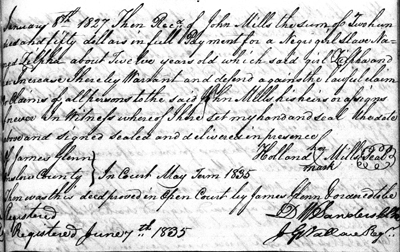 January 8th 1827 Then Recd of John Mills the sum of Two hun
and fifty dollars in full Payment for a Negro girl Slave Na
about twelve years old which said Girl Zilpha and
increase I hereby Warrant and defend against the lawful claim
Claims of all persons to the said John Mills his heirs or assigns
In Witness whereof I have set my hand and seal the date
and signed sealed and delivered in presence of
James Glenn Holland his mark Mills Seal
County } In Court May Term 1835
Then was this deed proved in Open Court by James Glenn & ordered to be
registered
Registered June 7th 1835 J G Wallace Regr